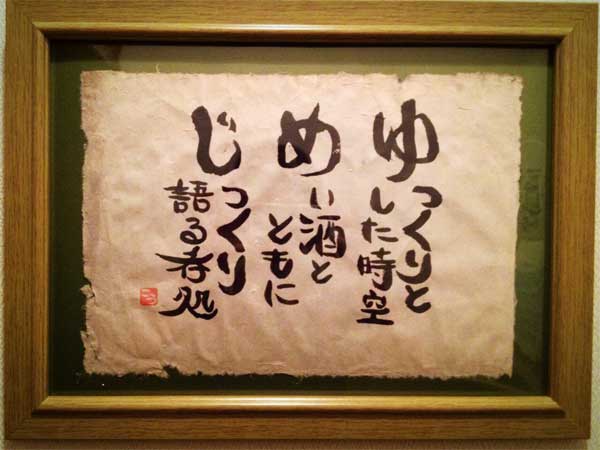 ゆっくりと
した時空
めい酒と
ともに
じっくり
語る呑処